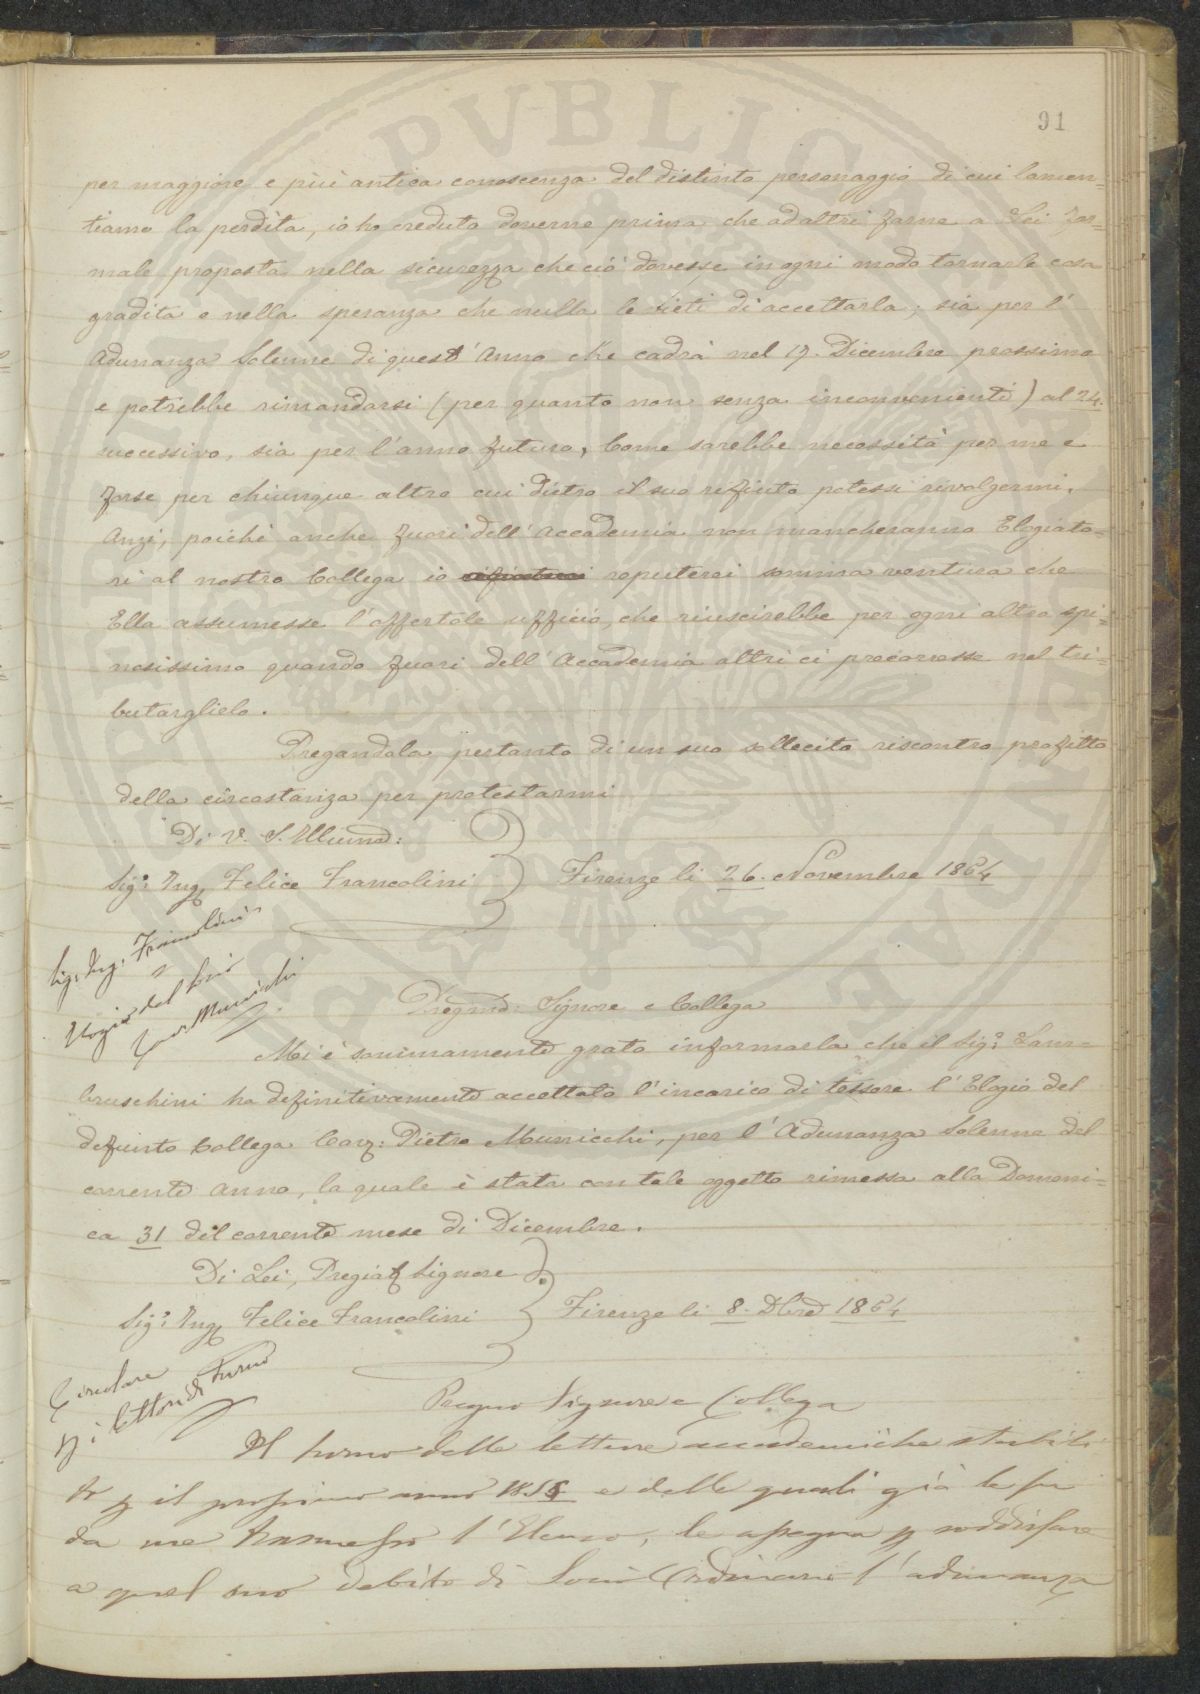 91
per maggiore e più antica conoscenza del distinto personaggio di cui lamen=
tiamo la perdita, io ho creduto doverne prima che ad altri farne a Lei for=
male proposta nella sicurezza che ciò dovesse in ogni modo tornarle cosa
gradita e nella speranza che nulla le vieti di accettarla; sia per l'
Adunanza Solenne di quest'Anno che cadrà nel 17. Dicembre prossimo
e potrebbe rimandarsi (per quanto non senza inconvenienti) al 24.
successivo, sia per l'anno futuro, Come sarebbe necessità per me e
forse per chiunque altro cui dietro il suo rifiuto potessi rivolgermi.
Anzi, poichè anche fuori dell'Accademia non mancheranno Elogiato=
ri al nostro Collega io reputerei somma ventura che
Ella assumesse l'offertole ufficio, che riuscirebbe per ogni altro spi=
nosissimo quando fuori dell'Accademia altri ci precorresse nel tri=
butarglielo.
Pregandola pertanto di un suo sollecito riscontro profitto
della circostanza per protestarmi
Di V. S. Illuma:
Sig: Ing Felice Francolini } Firenze li 26. Novembre 1864
Sig: Ing: Francolini
Elogio del Socio
Munichi
Pregmo: Signore e Collega
Mi è sommamente grato informarla che il Sig: Lam=
bruschini ha definitivamente accettato l'incarico di tessere l'Elogio del
defunto Collega Cav: Pietro Municchi, per l'Adunanza Solenne del
corrente Anno, la quale è stata con tale oggetto rimessa alla Domeni=
ca 31 del corrente mese di Dicembre.
Di Lei, Pregiat Signore
Sig: Ing Felice Francolini } Firenze li 8. Dbre 1864
Circolare
p i Lettori di Turno
Pregmo Signore e Collega
Il turno delle letture accademiche stabili
to p il prossimo anno e delle quali già le fu
da me trasmesso l'Elenco, le assegna p soddisfare
a quel suo debito di Socio Ordinario l'adunanza